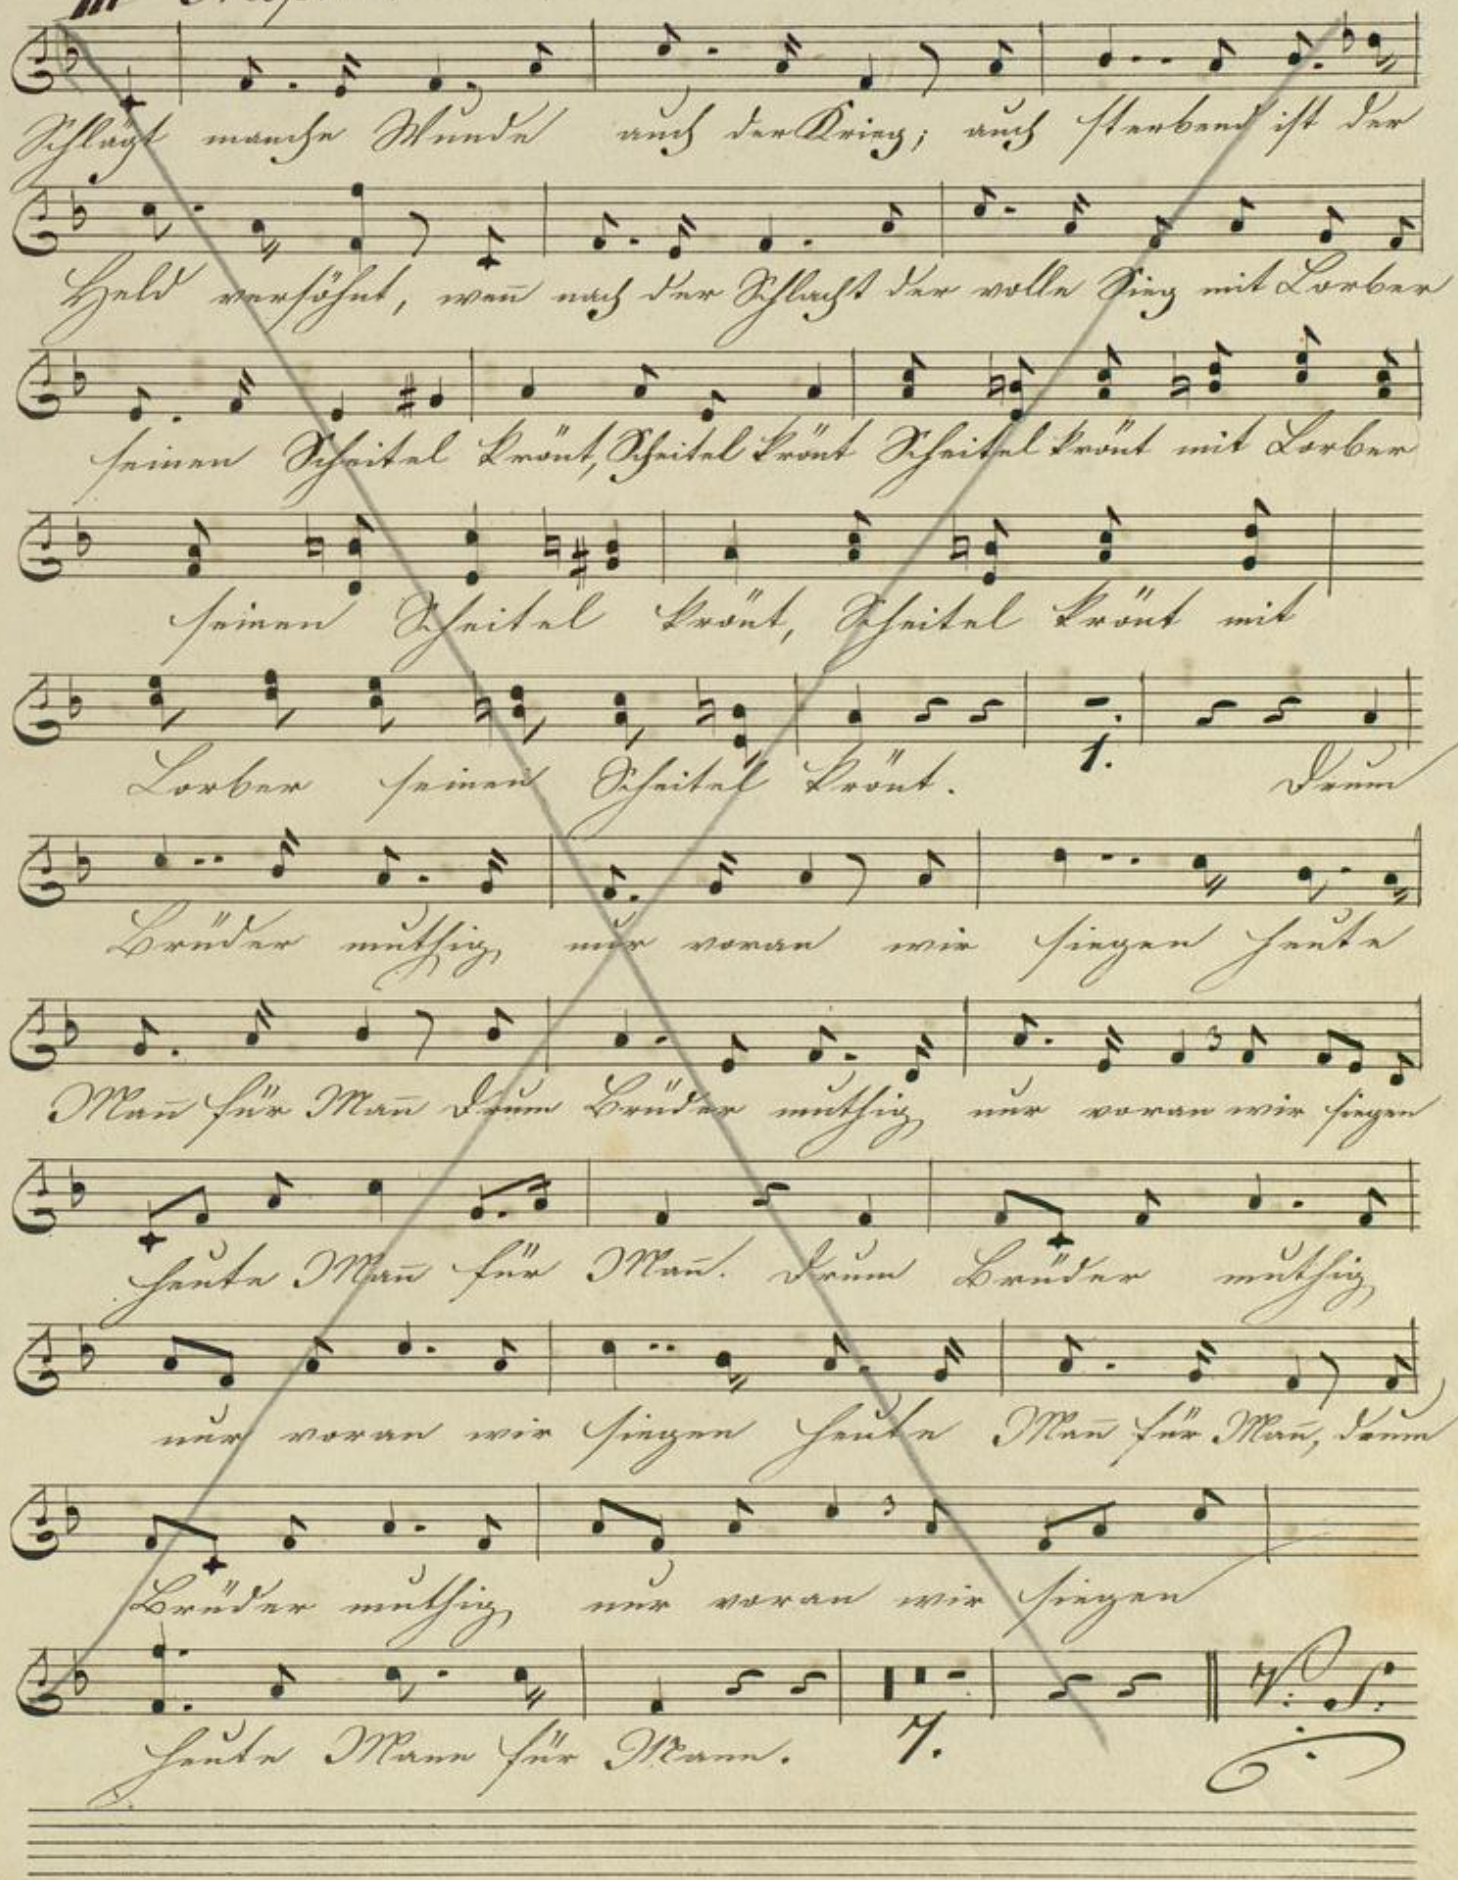 Schlägt manche Wunde auch der Krieg; auch sterbend ist der
Held versöhnt, weñ nach der Schlacht der volle Sieg mit Lorber
seinen Scheitel krönt, Scheitel krönt Scheitel krönt mit Lorber
seinen Scheitel krönt, Scheitel krönt mit
Lorber seinen Scheitel krönt. 1. Drum
Brüder muthig nur voran wir siegen heute
Mañ für Mañ Drum Brüder muthig nur voran wir siegen
3
heute Mañ für Mañ. Drum Brüder muthig
nur voran wir siegen heute Mañ für Mañ, drum
3
Brüder muthig nur voran wir siegen
heute Mann für Mann. 7.
V: S: